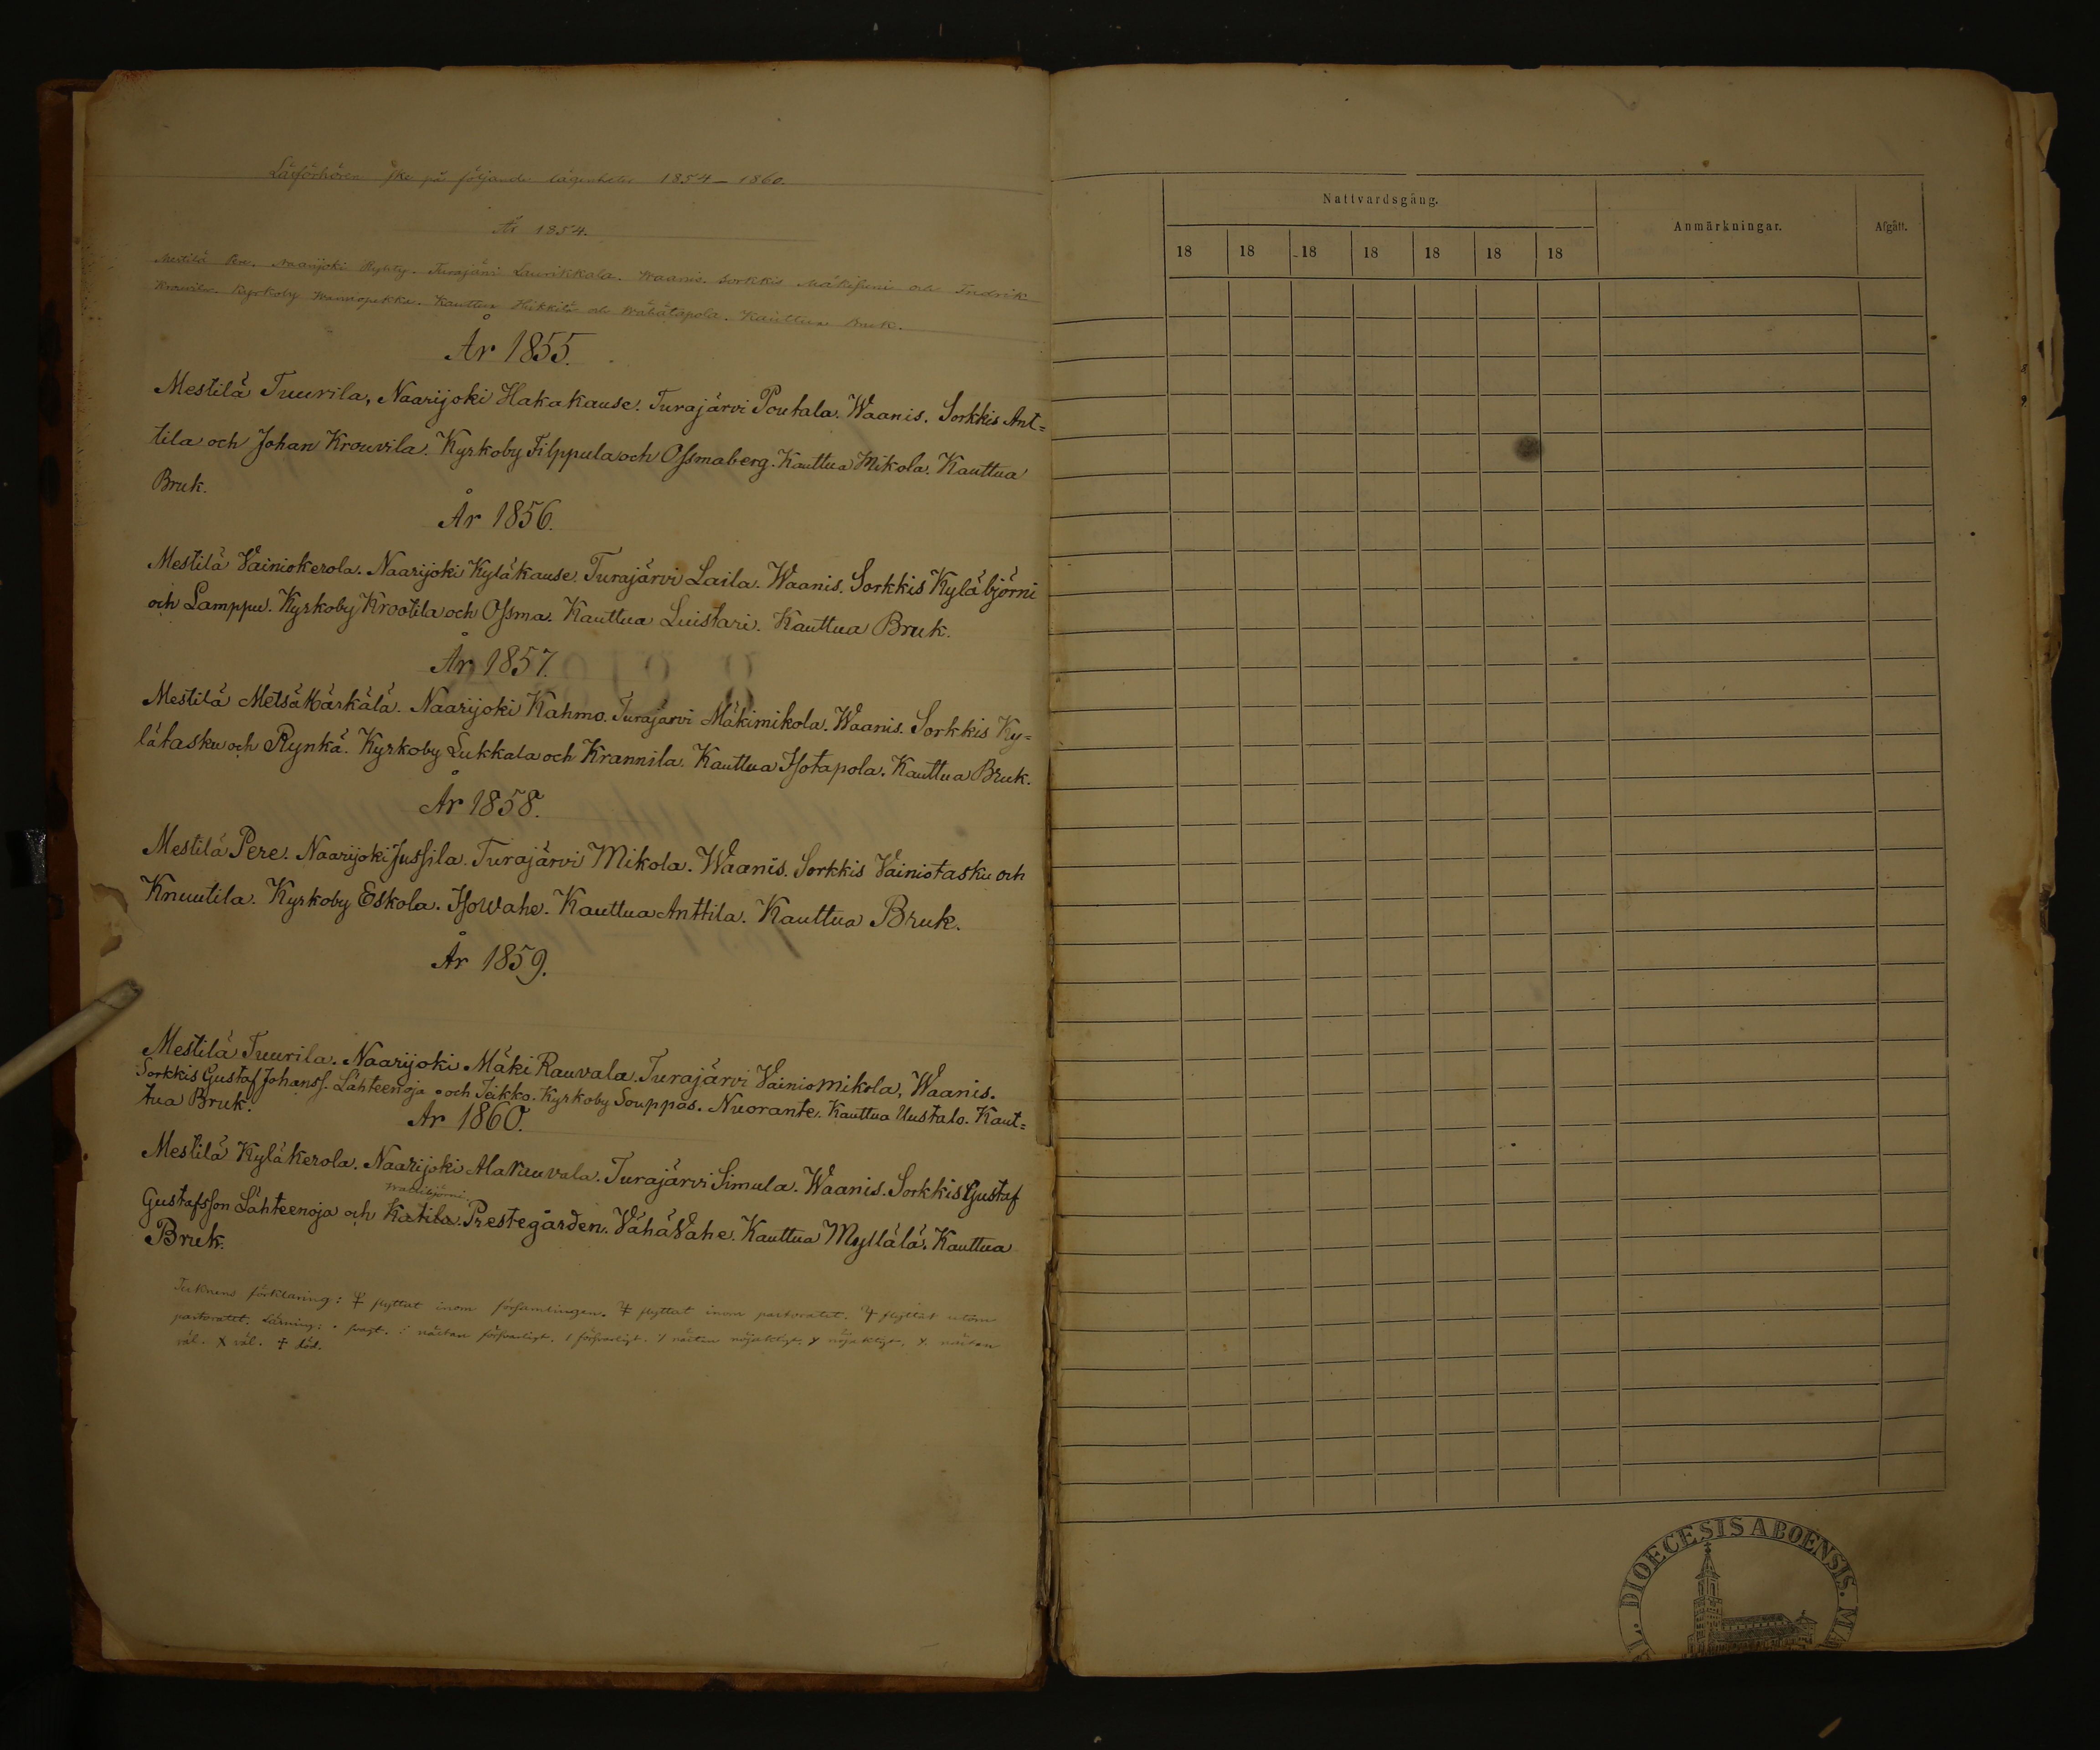 Läsförhören ske på följande lägenheter 1854–1860.
År 1854.
Mestilä Pere. Naarijoki Ryhty. Turajärvi Laurikkala. Waanis. Sorkkis och Indrik
Krouvila. Kyrkoby Wannopekka. Kauttua Heikkilä och Wähätapola. Kauttua Bruk.
År 1855.
Mestilä Tuurila, Naarijoki Hakakause. Turajärvi Poutala. Waanis. Sorkkis Ant=
tila och Johan Krouvila. Kyrkoby Filppula och Ossmaberg. Kauttua Mikola. Kauttua
Bruk.
År 1856.
Mestilä Vainiokerola. Naarijoki Kyläkause. Turajärvi Laila. Waanis. Sorkkis Kyläbjörni
och Lamppu. Kyrkoby Krootila och Ossma. Kauttua Luistari. Kauttua Bruk.
År 1857.
Mestilä Metsäkärkälä. Naarijoki Kahmo. Turajärvi Mäkimikola. Waanis. Sorkkis Ky=
lätasku och Rynkä. Kyrkoby Lukkala och Krannila. Kauttua Isotapola. Kauttua Bruk.
År 1858.
Mestilä Pere. Naarijoki Jussila. Turajärvi Mikola. Waanis. Sorkkis Vainiotasku och
Knuutila. Kyrkoby Eskola. IsoWahe. Kauttua Anttila. Kauttua Bruk.
År 1859.
Mestilä Tuurila. Naarijoki Mäki Rauvala. Turajärvi Vainiomikola, Waanis.
Sorkkis Gustaf Johanss. Lähteenoja och Teikko. Kyrkoby Souppas. Nuorante. Kauttua Uustalo. Kaut=
tua Bruk.
År 1860.
Mestilä Kyläkerola. Naarijoki Alaruuvala. Turajärvi Simula. Waanis. Sorkkis Gustaf
Gustafsson Lähteenoja och Katila. Prestegården. VähäVahe. Kauttua Myllälä. Kauttua
Bruk.
Tecknens förklaring: flyttat inom församlingen. flyttat inom pastoratet. flyttat utom
pastoratet. Läsning: . svagt. : nästan försvarligt. / försvarligt. nästan nöjaktigt. nöjaktigt. nästan
väl. X väl. † död.
Nattvardsgång.
Anmärkningar.
Afgått.
18 18 18 18 18 18 18
DIOECESIS ABOENSIS.